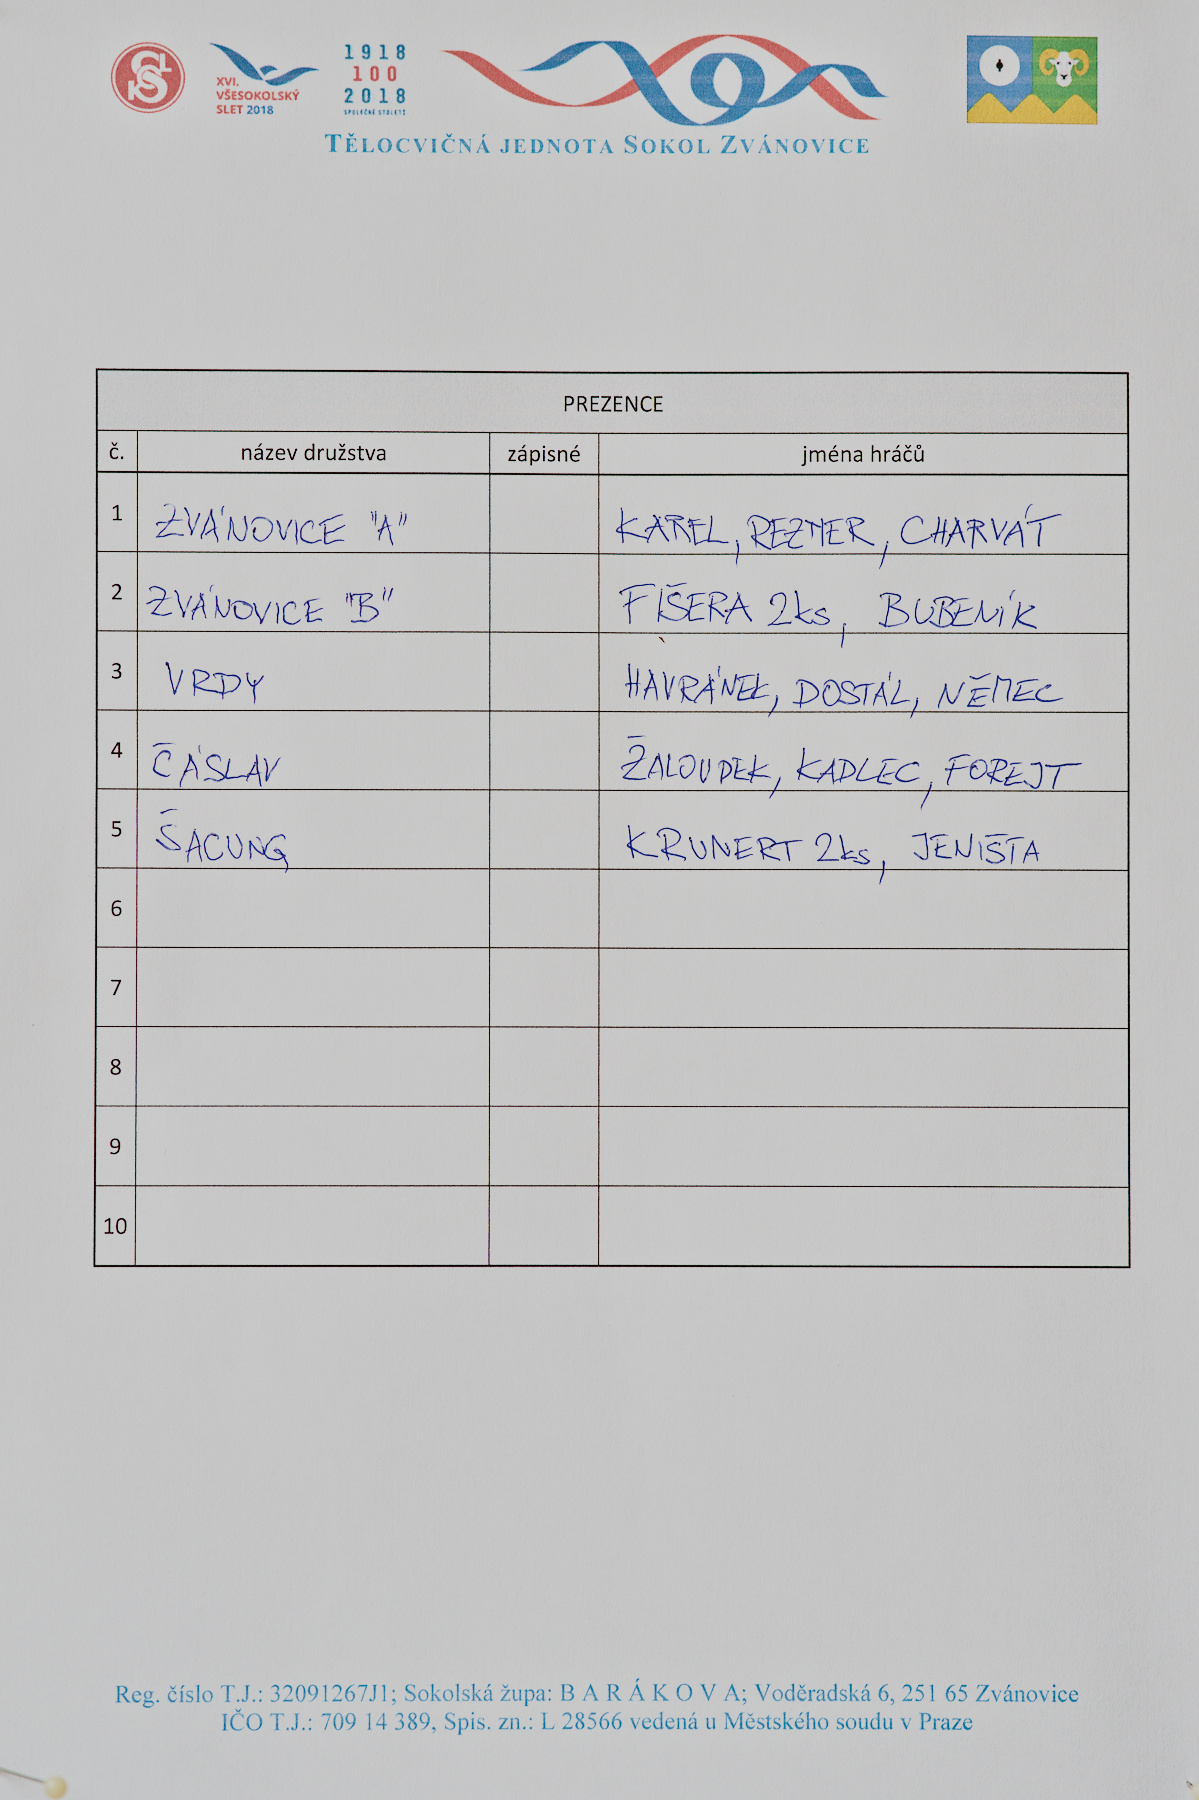 XVI.
VŠESOKOLSKÝ
SLET 2018
1918
100
2018
SPOLEČNÉ STOLETÍ
TĚLOCVIČNÁ JEDNOTA SOKOL ZVÁNOVICE
PREZENCE
č. název družstva zápisné jména hráčů
1 ZVÁNOVICE "A" KAREL, REZNER, CHARVÁT
2 ZVÁNOVICE "B" FIŠERA 2ks, BUBENÍK
3 VRDY HAVRÁNEK, DOSTÁL, NĚMEC
4 ČÁSLAV ŽALOUDEK, KADLEC, FOREJT
5 ŠACUNG KRUNERT 2ks, JENIŠTA
6
7
8
9
10
Reg. číslo T.J.: 32091267J1; Sokolská župa: B A R Á K O V A; Voděradská 6, 251 65 Zvánovice
IČO T.J.: 709 14 389, Spis. zn.: L 28566 vedená u Městského soudu v Praze